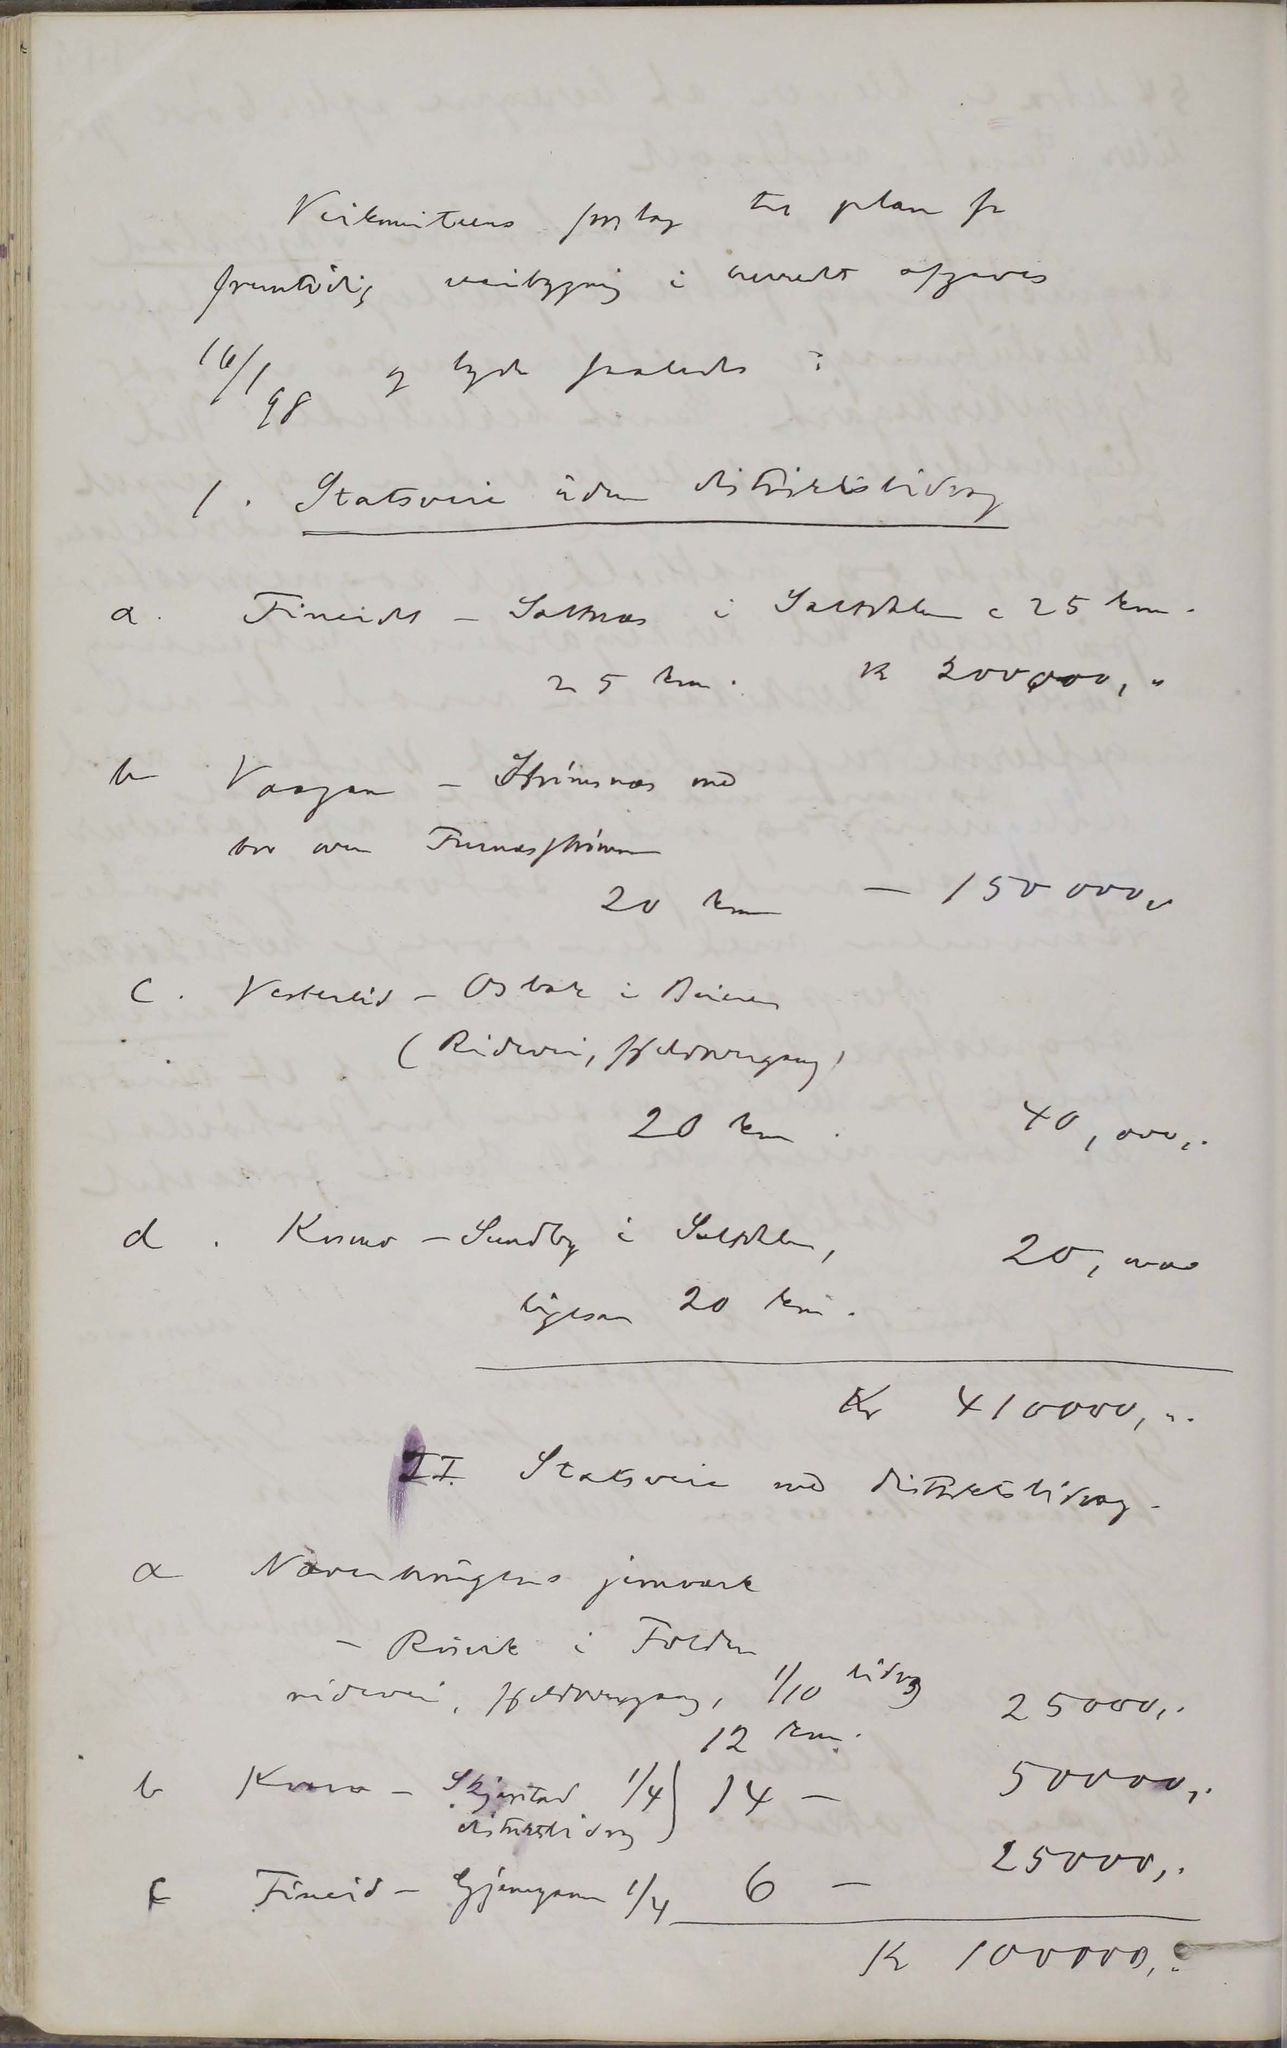 Veikomiteens forslag til plan for
fremtidig veibygning i herredet afgaves
16/1 98 og lyder saaledes :
1. Statsveie uden distriktsbidrag
a. Fineidet – Saltnes i Saltdalen c 25 km.
25 km. Kr 200000,"
b Vaagan – Strømsnæs med
bro over Finnæsstrømmen
20 km – 150 000,"
c. Vesterlid – Osbak i Beieren
(Ridevei, fjeldovergang)
20 km. 40,000,.
d. Kosmo – Sundby i Saltdalen, 20,000
ligesom 20 km.
Kr 410000,".
II. Statsveie med distriktsbidrag.
a Næverhaugens jernværk
– Røsvik i Folden
ridevei, fjeldovergang, 1/10 bidrag 25000,.
12 km.
b Kosmo – Skjerstad 1/4 } 14 – 50000,.
distriktsbidrag
c Fineid – Gjømgam 1/4 6 – 25000,.
Kr 100000,.